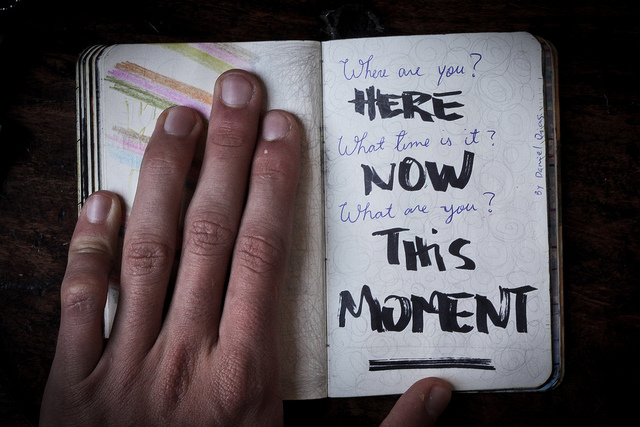 Where are you?
HERE
What time is it?
NOW
What are you?
THis
MOMENT
By Daniel